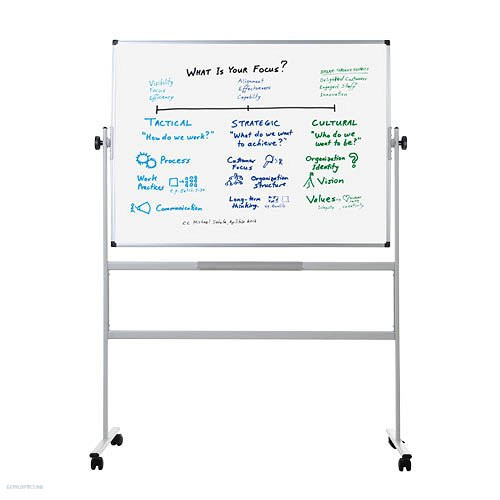 What Is Your Focus?
Visibility
Focus
Efficiency
Alignment
Effectiveness
Capability
Delighted Customers
Engaged Staff
Innovation
Tactical
"How do we work?"
Process
Work
Practices
Communication
Strategic
"What do we want
to achieve?"
Customer
Focus
Organization
Structure
Long-term
thinking
Cultural
"Who do we
want to be?"
Organization
Identity ?
Vision
Values
CC Michael Sahota, Agilitrix